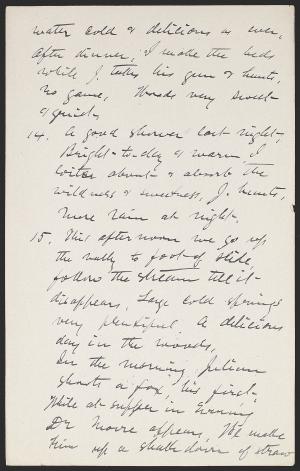 water cold & delicious as ever,
After dinner, I make the beds
while J. takes his gun & hunts,
no game. Woods very sweet
& quiet.
14. A good shower last night,
Bright to-day & warm I
loiter about & absorb the
wildness & sweetness, J. hunts,
More rain at night.
15. This afternoon we go up
the valley to foot of slide
follow the stream till it
disappears, Large cold springs
very plentiful. A delicious
day in the woods,
In the morning, Julian
shoots a fox, his first,
While at supper in evening
Dr Moore appears, We make
him up a shake down of straw